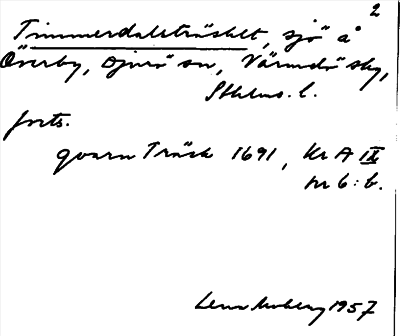 2
Timmerdalsträsket, sjö å
Överby, Djurö sn, Värmdö skg,
Sthlms. l.
forts.
qvarn Träsk 1691, Kr A IX
nr 6:b.
Lena Moberg 1957